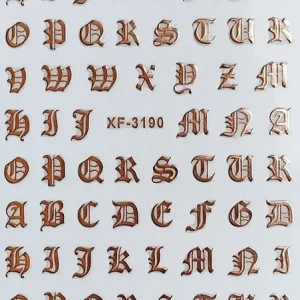 O P Q R S T U R
V W W X Y Z M
H I J XF-3190 M N A
O P Q R S T U R
A B C D E F G D
H I J K L M N I
O P Q R S T U R